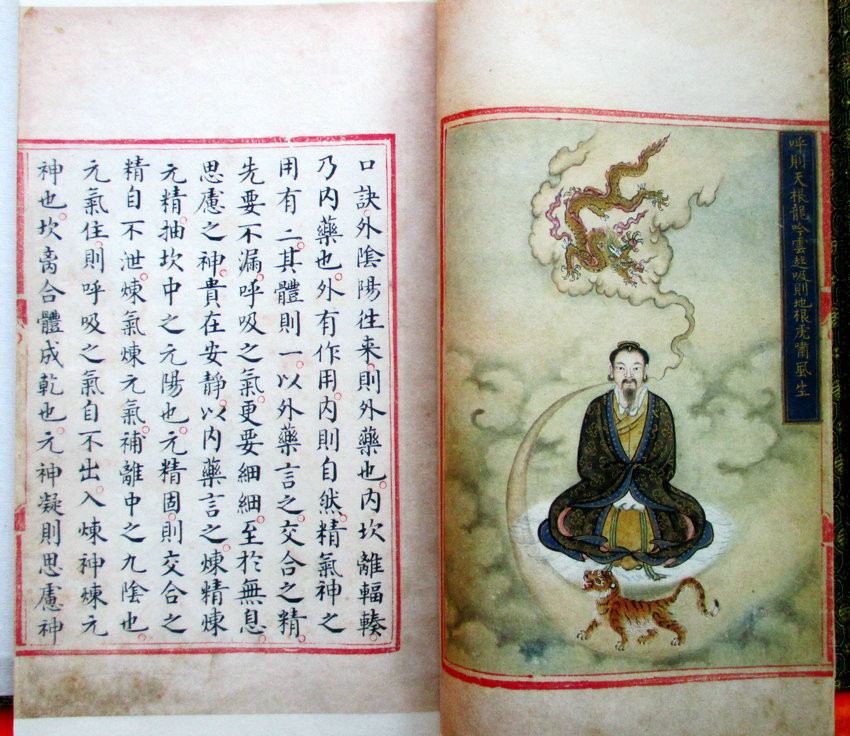 呼則天根龍吟雲起吸則地根虎嘯風生
口訣外陰陽往來則外藥也內坎離輻輳
乃內藥也外有作用內則自然精氣神之
用有二其體則一以外藥言之交合之精
先要不漏呼吸之氣更要細細至於無息
思慮之神貴在安靜以內藥言之煉精煉
元精抽坎中之元陽也元精固則交合之
精自不泄煉氣煉元氣補離中之九陰也
元氣住則呼吸之氣自不出入煉神煉元
神也坎离合體成乾也元神凝則思慮神